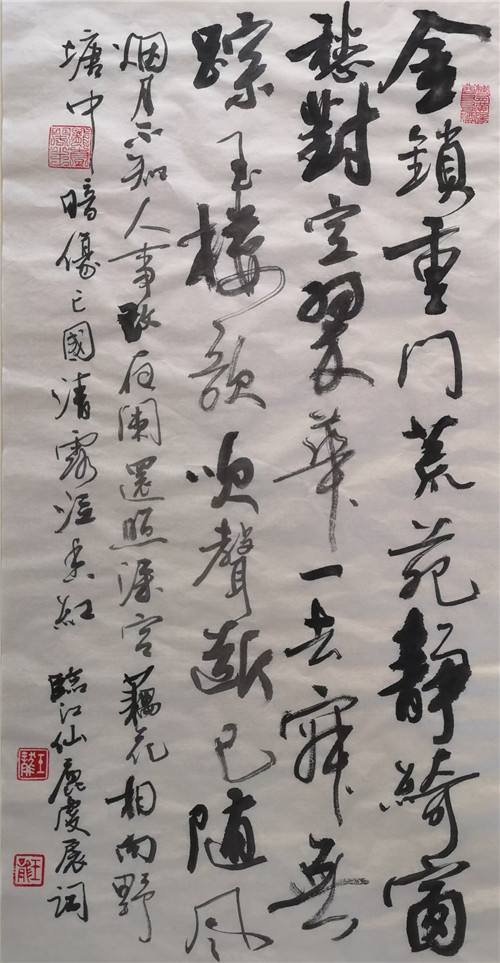 金鎖重門荒苑靜綺窗
愁對空翠華一去寂無
踪玉樓歌吹聲斷已随風
烟月不知人事改夜闌還照深宮藕花相向野
塘中暗傷亡國清露泣香紅 臨江仙鹿虔扆詞
王龍
王龍